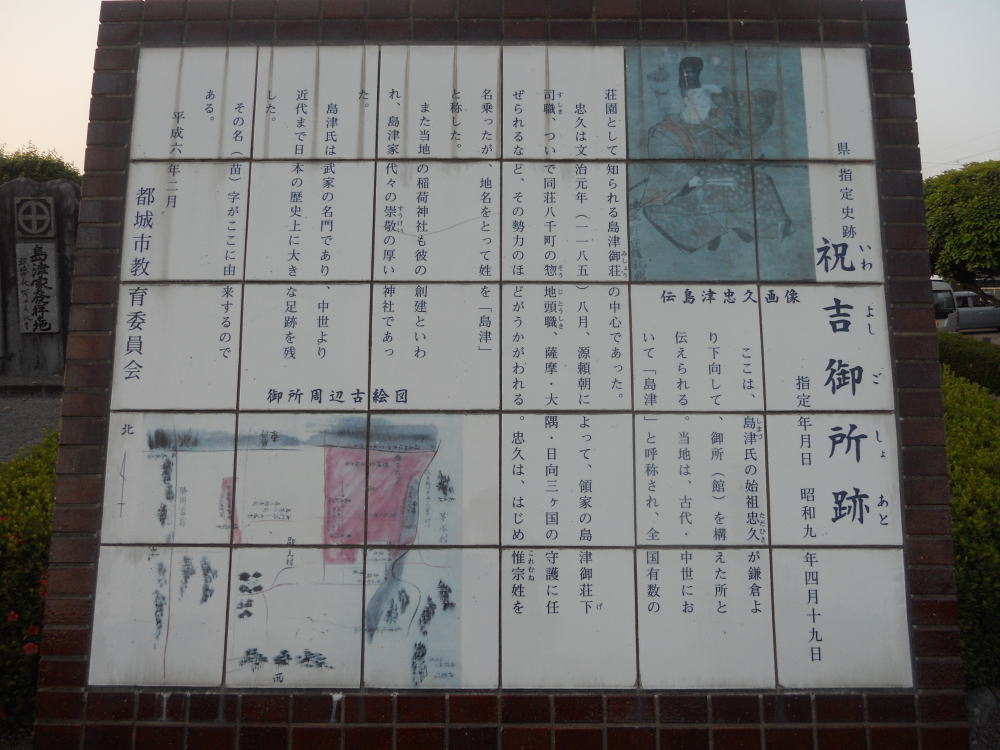 県指定史跡
祝吉御所跡
いわ よし ご しょ あと
指定年月日 昭和九年四月十九日
伝島津忠久画像
ここは、島津氏の始祖忠久が鎌倉よ
しまづ
ただひさ
り下向して、御所(館)を構えた所と
伝えられる。当地は、古代・中世にお
いて「島津」と呼称され、全国有数の
荘園として知られる島津御荘の中心であった。
みしょう
忠久は文治元年(一一八五)八月、源頼朝によって、領家の島津御荘下
げ
司職、ついで同荘八千町の惣地頭職、薩摩・大隅・日向三ヶ国の守護に任
すしき
そう
じとうしき
ぜられるなど、その勢力のほどがうかがわれる。忠久は、はじめ惟宗姓を
これむね
名乗ったが、地名をとって姓を「島津」
と称した。
また当地の稲荷神社も彼の創建といわ
れ、島津家代々の崇敬の厚い神社であっ
すうけい
た。
島津氏は武家の名門であり、中世より
近代まで日本の歴史上に大きな足跡を残
した。
その名(苗)字がここに由来するので
ある。
平成六年二月
都城市教育委員会
御所周辺古絵図
北
西
島津家発祥地